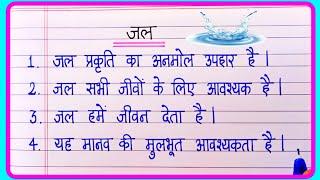 जल
1. जल प्रकृति का अनमोल उपहार है |
2. जल सभी जीवों के लिए आवश्यक है |
3. जल हमें जीवन देता है |
4. यह मानव की मुलभूत आवश्यकता है |